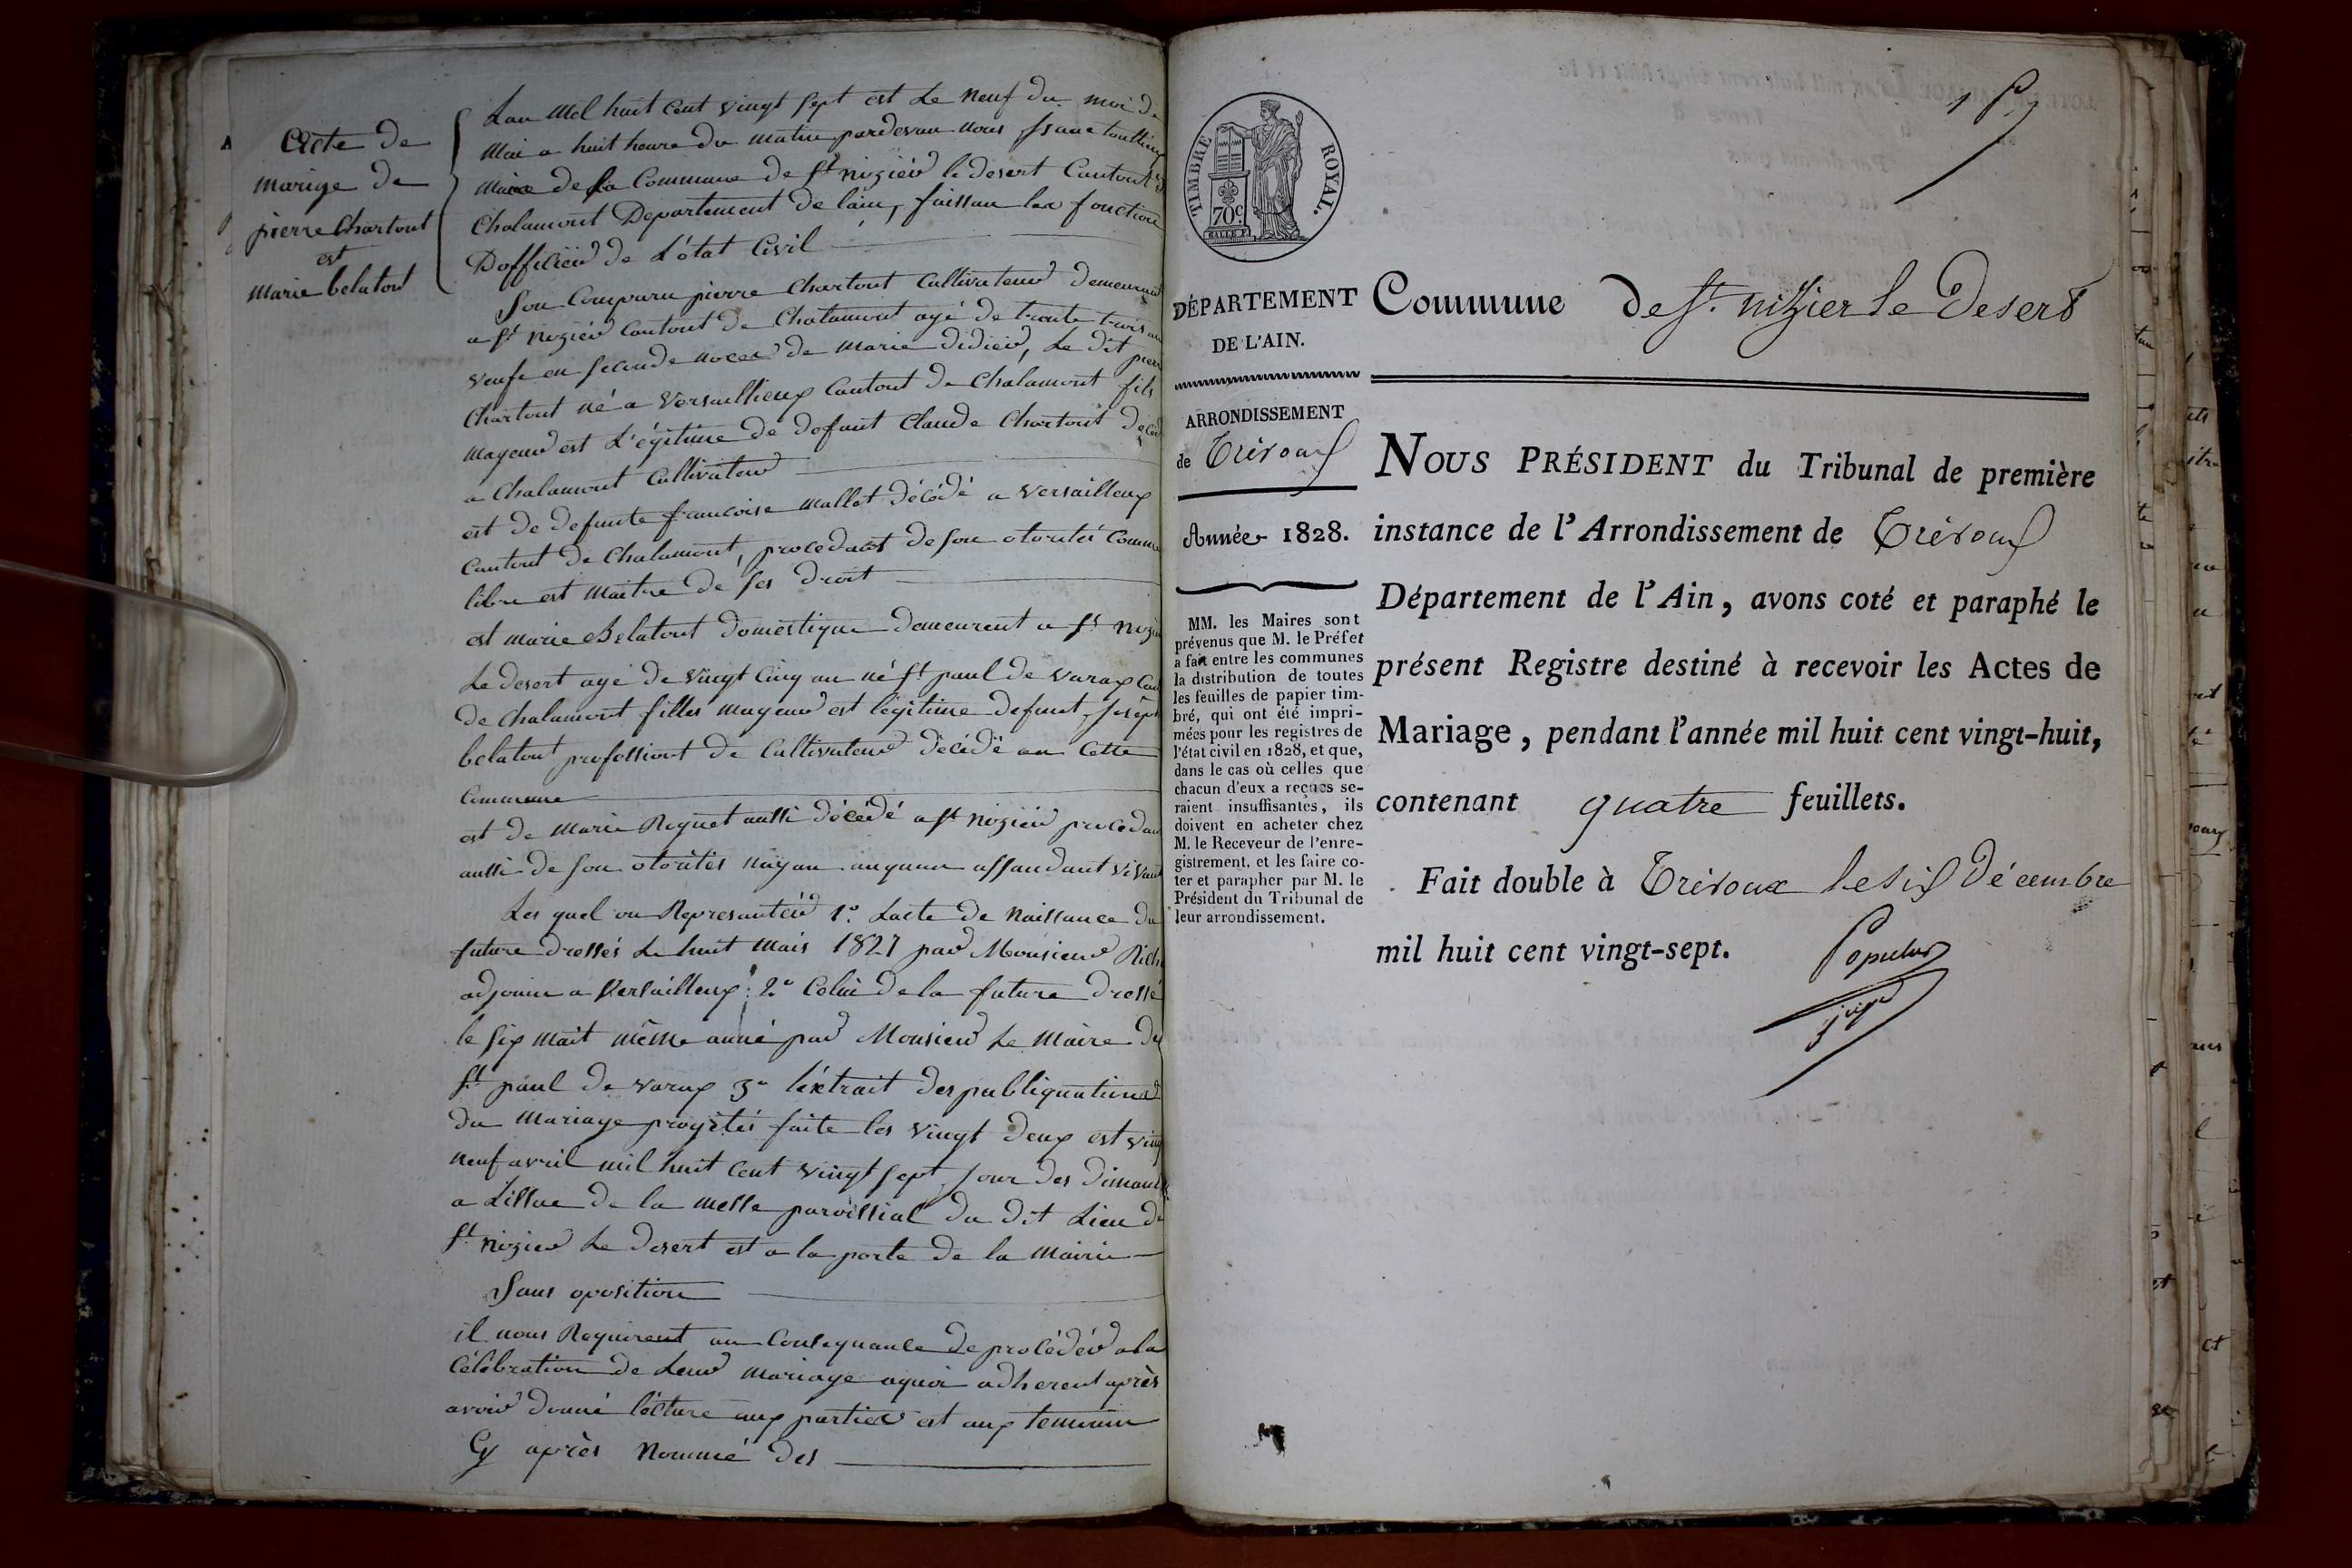 Acte de
marige de
pierre Chartout
est
marie belatout
Lan Mel huit Cent vingt Sept est Le Neuf du moi de
Mai a huit heure du matin pardevan nous
Maire de la Commune de St niziér le desert Cantout
Chalamont Departement de lain, faissan les fonction
Dofficiér de L'état Civil
Son Comparu pierre Chartout Cultivateur demeurant
a St niziér Cantout de Chalamont agé de trante trois an
veufe en Seconde noces de Marie didiér, Le dit pierre
Chartout né a Versaillieux Cantout de Chalamont fils
Mageur est L'égitime de defunt Claude Chartout
a Chalamont Cultivateur
est de defunte francoise Mallet décédé a Versailleux
Cantout de Chalamont, procedant de son otorités Comme
libre est Maitre de ses droit
est marie Belatout domestique demeurent a St
Le desert agé de vingt Cinq an né St paul de varax
de Chalamont filles mageur est légitime defunt Joseph
belatout profession de Cultivateur décédé an Cette
Commune
est de Marie Riquet aussi décédé a St niziér procedan
aussi de son otorités nayan auqun assandant vivant
Les quel on Represantér 1.° Lacte de Naissance du
future dressés Le huit Mais 1827 par Monsieur
adjouin a Versailleux: 2.° Celui de la future dressé
le Six mait même anné par Monsieur Le Maire de
St paul de varax 3.° l'extrait des publiquations
du Mariage progétés faite les vingt deux est vingt
neuf avril mil huit Cent vingt Sept, Jour des dimanche
a Lissue de la Messe paroissial du dit Lieu de
St nizier Le desert est a la porte de la Mairie
Sans oposition
il nous Requirent an Consequance de procédér a la
Célébration de Leur Mariage aquoi adherent après
avoir donné lécture aux parties est aux temouin
Cy après Nommé des
TIMBRE ROYAL.
70c.
DÉPARTEMENT
DE L'AIN.
ARRONDISSEMENT
de Trévoux
Année 1828.
MM. les Maires sont
prévenus que M. le Préfet
a fait entre les communes
la distribution de toutes
les feuilles de papier tim-
bré, qui ont été impri-
mées pour les registres de
l'état civil en 1828, et que,
dans le cas où celles que
chacun d'eux a reçues se-
raient insuffisantes, ils
doivent en acheter chez
M. le Receveur de l'enre-
gistrement, et les faire co-
ter et parapher par M. le
Président du Tribunal de
leur arrondissement.
Commune de St. nizier le Desert
NOUS PRÉSIDENT du Tribunal de première
instance de l'Arrondissement de Trévoux
Département de l'Ain, avons coté et paraphé le
présent Registre destiné à recevoir les Actes de
Mariage, pendant l'année mil huit cent vingt-huit,
contenant quatre feuillets.
Fait double à Trévoux le six Décembre
mil huit cent vingt-sept.
Populus
juge